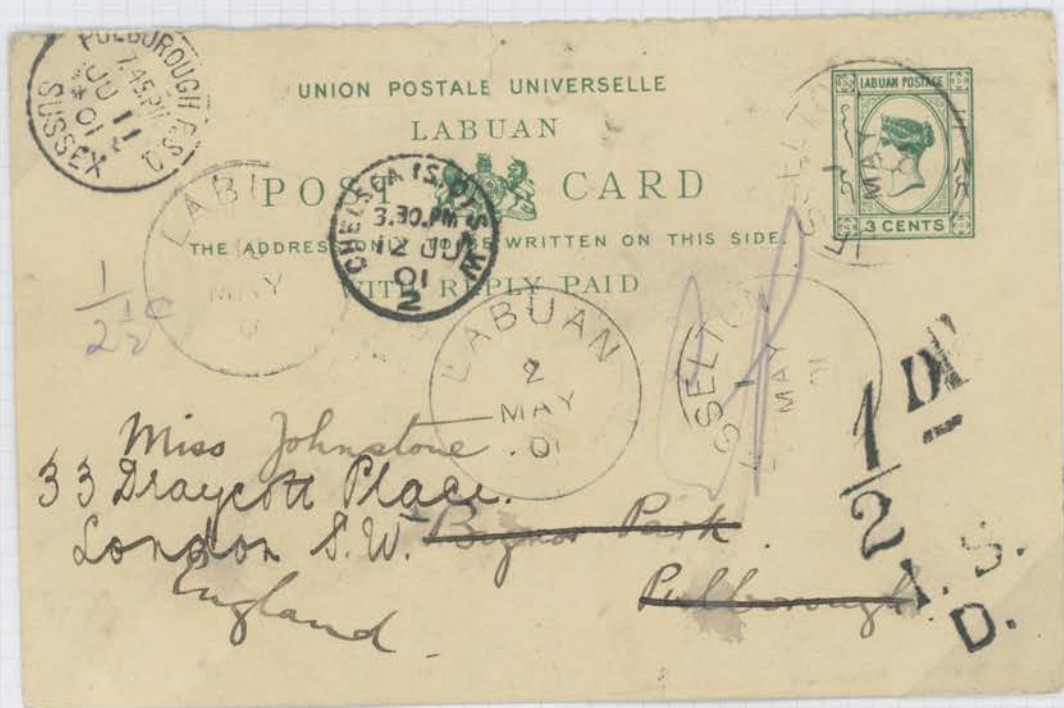 PULBOROUGH R.S.O
7.45PM
JU 11
01
SUSSEX
UNION POSTALE UNIVERSELLE
LABUAN
POST CARD
THE ADDRESS ONLY TO BE WRITTEN ON THIS SIDE.
WITH REPLY PAID
LABUAN POSTAGE
3 CENTS
MAY
LAB
MAY
CHELSEA (S.O) S.W
3.30.PM
12 JU
01
2
1
2½c
LABUAN
2
MAY
01
SSELTO
1
MAY
01
1/2 D
I. S.
D.
Miss Johnstone
33 Draycott Place.
London S.W. Bignor Park
England Pulborough